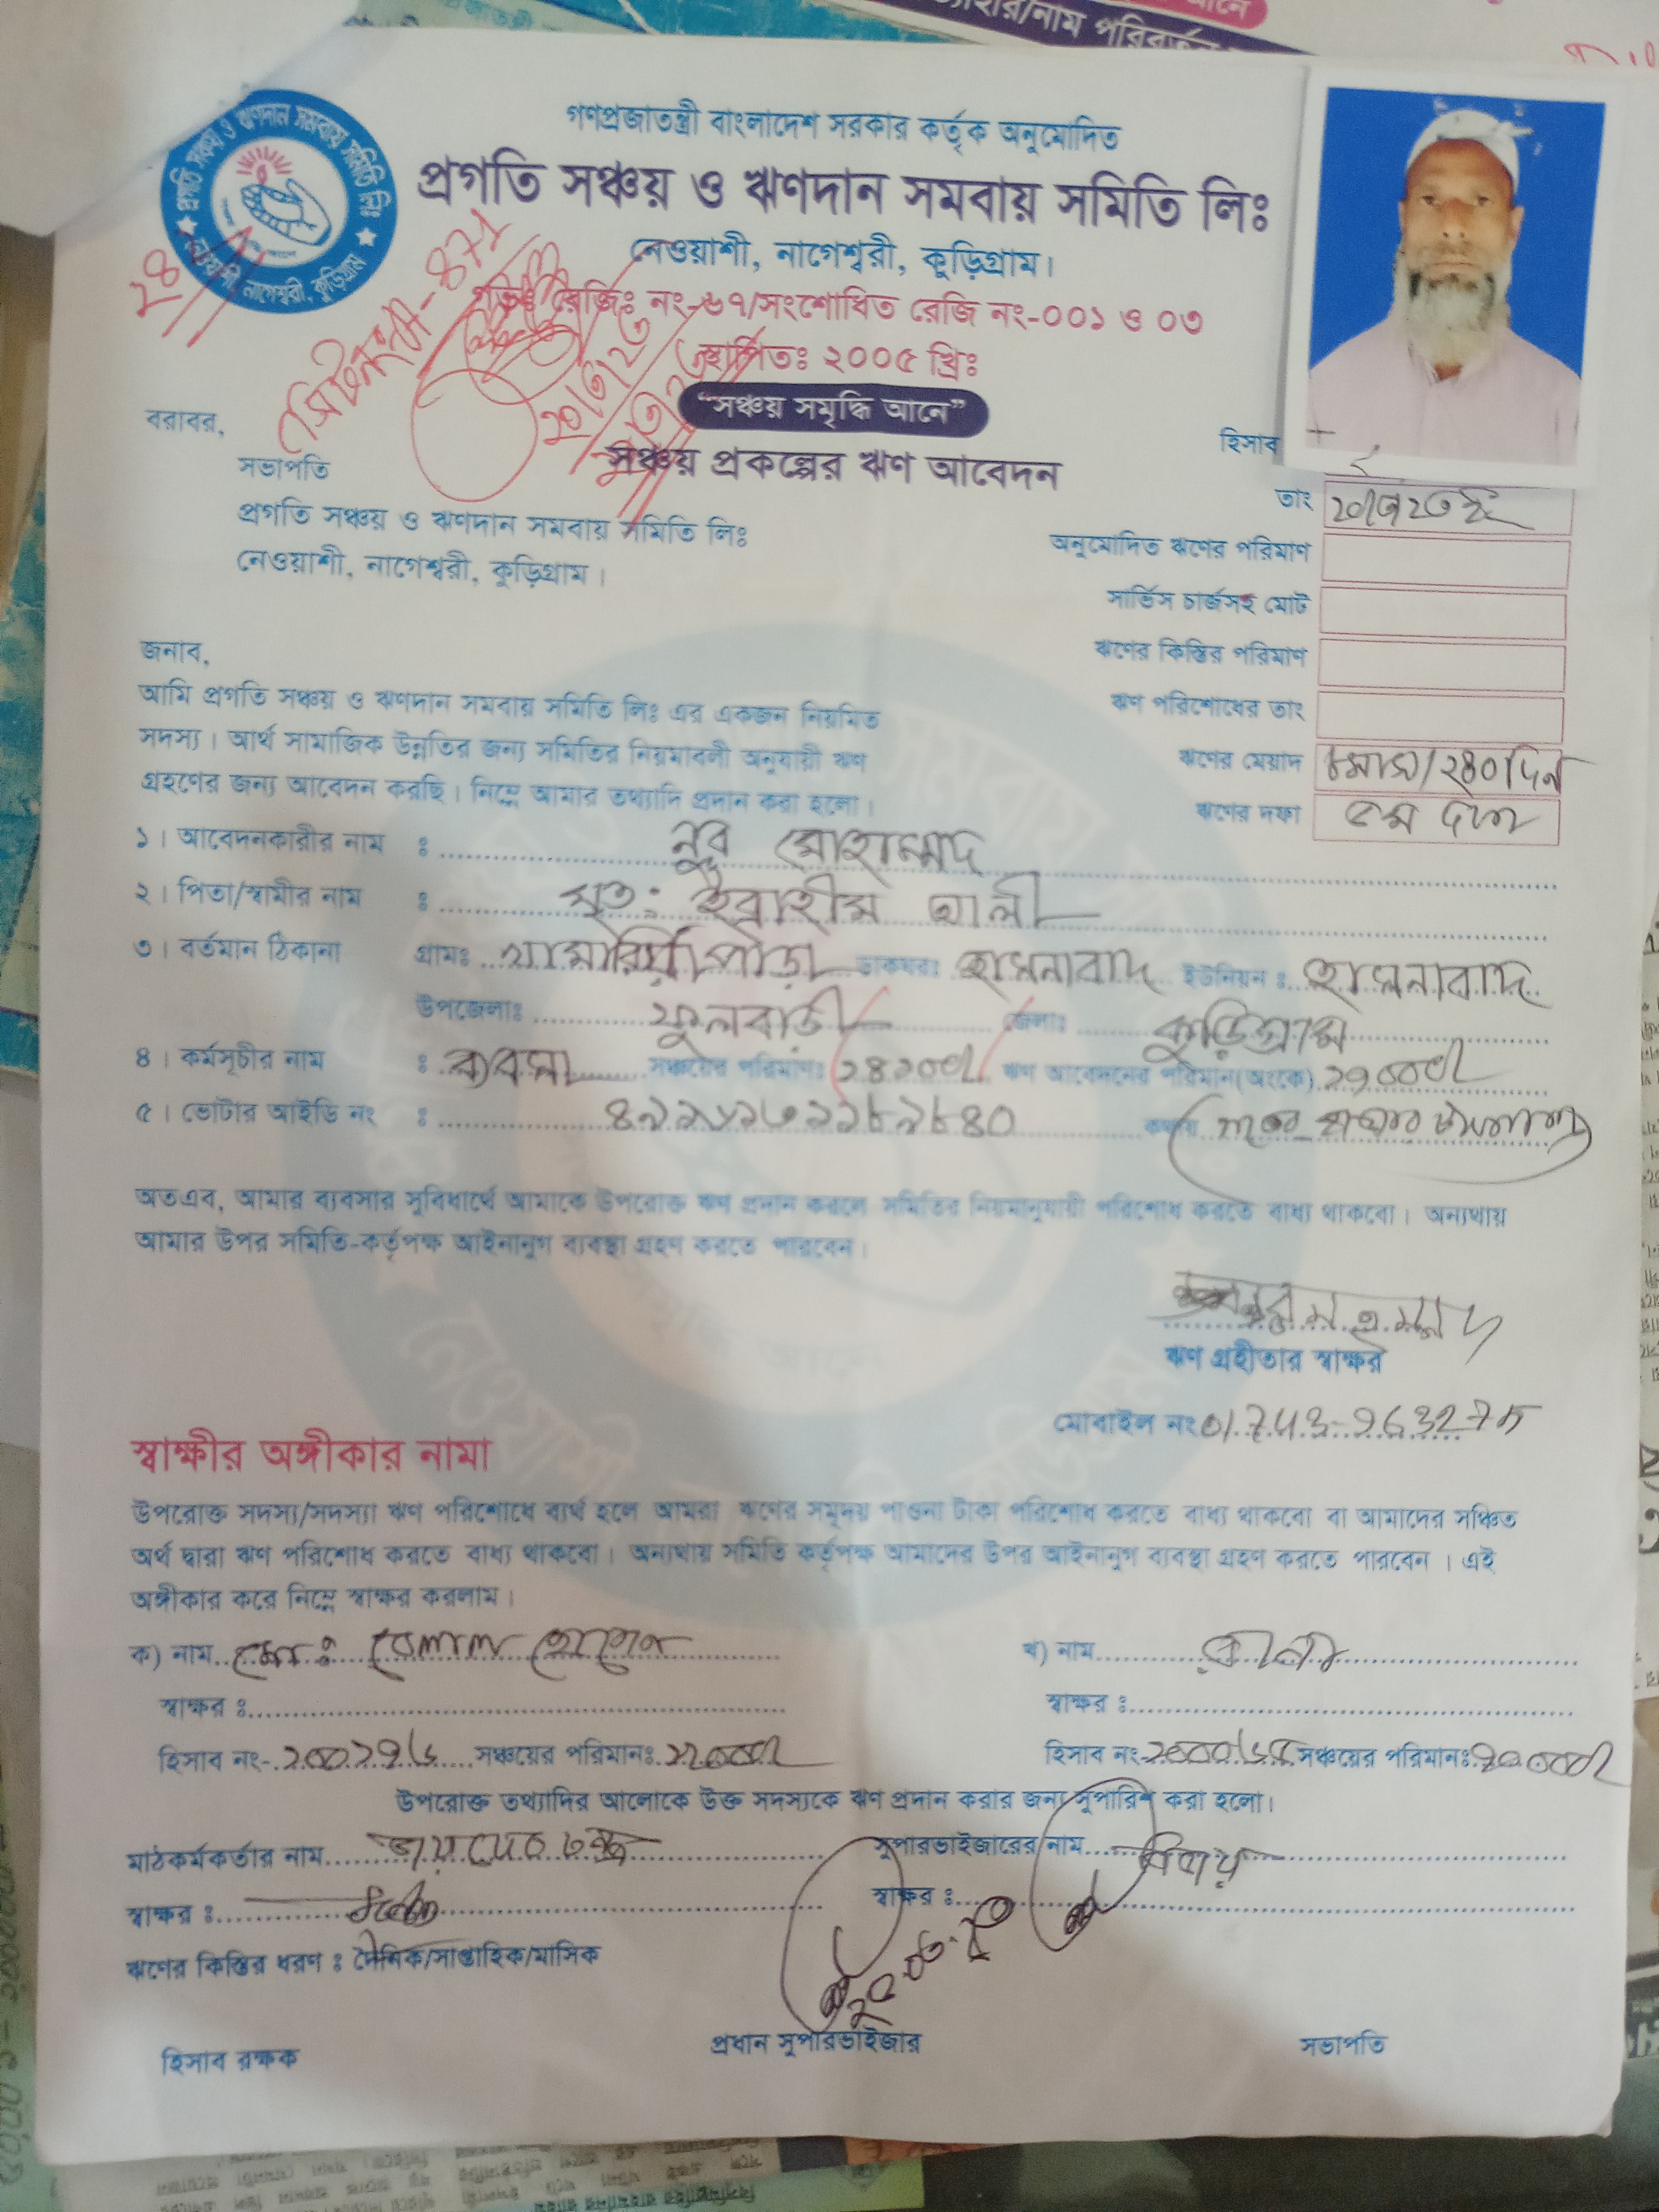 ত্যাহার/নাম পরিবর্তন
প্রগতি সঞ্চয় ও ঋণদান সমবায় সমিতি লিঃ
নেওয়াশী, নাগেশ্বরী, কুড়িগ্রাম
গণপ্রজাতন্ত্রী বাংলাদেশ সরকার কর্তৃক অনুমোদিত
প্রগতি সঞ্চয় ও ঋণদান সমবায় সমিতি লিঃ
নেওয়াশী, নাগেশ্বরী, কুড়িগ্রাম।
রেজিঃ নং-৬৭/সংশোধিত রেজি নং-০০১ ও ০৩
স্থাপিতঃ ২০০৫ খ্রিঃ
“সঞ্চয় সমৃদ্ধি আনে”
সঞ্চয় প্রকল্পের ঋণ আবেদন
বরাবর,
সভাপতি
প্রগতি সঞ্চয় ও ঋণদান সমবায় সমিতি লিঃ
নেওয়াশী, নাগেশ্বরী, কুড়িগ্রাম।
হিসাব
তাং
অনুমোদিত ঋণের পরিমাণ
সার্ভিস চার্জসহ মোট
ঋণের কিস্তির পরিমাণ
ঋণ পরিশোধের তাং
ঋণের মেয়াদ ৮মাস/২৪০দিন
ঋণের দফা ৫ম দফা
জনাব,
আমি প্রগতি সঞ্চয় ও ঋণদান সমবায় সমিতি লিঃ এর একজন নিয়মিত
সদস্য। আর্থ সামাজিক উন্নতির জন্য সমিতির নিয়মাবলী অনুযায়ী ঋণ
গ্রহণের জন্য আবেদন করছি। নিম্নে আমার তথ্যাদি প্রদান করা হলো।
১। আবেদনকারীর নাম : নুর মোহাম্মদ
২। পিতা/স্বামীর নাম : মৃত: ইব্রাহীম আলী
৩। বর্তমান ঠিকানা গ্রামঃ ডাকঘরঃ হাসনাবাদ ইউনিয়ন : হাসনাবাদ
উপজেলাঃ ফুলবাড়ী জেলাঃ কুড়িগ্রাম
৪। কর্মসূচীর নাম : ব্যবসা সঞ্চয়ের পরিমাণঃ ঋণ আবেদনের পরিমান(অংকে)
৫। ভোটার আইডি নং : কথায়
অতএব, আমার ব্যবসার সুবিধার্থে আমাকে উপরোক্ত ঋণ প্রদান করলে সমিতির নিয়মানুযায়ী পরিশোধ করতে বাধ্য থাকবো। অন্যথায়
আমার উপর সমিতি-কর্তৃপক্ষ আইনানুগ ব্যবস্থা গ্রহণ করতে পারবেন।
ঋণ গ্রহীতার স্বাক্ষর
মোবাইল নং
স্বাক্ষীর অঙ্গীকার নামা
উপরোক্ত সদস্য/সদস্যা ঋণ পরিশোধে ব্যর্থ হলে আমরা ঋণের সমূদয় পাওনা টাকা পরিশোধ করতে বাধ্য থাকবো বা আমাদের সঞ্চিত
অর্থ দ্বারা ঋণ পরিশোধ করতে বাধ্য থাকবো। অন্যথায় সমিতি কর্তৃপক্ষ আমাদের উপর আইনানুগ ব্যবস্থা গ্রহণ করতে পারবেন। এই
অঙ্গীকার করে নিম্নে স্বাক্ষর করলাম।
ক) নাম মোঃ বেলাল হোসেন খ) নাম
স্বাক্ষর : স্বাক্ষর :
হিসাব নং- সঞ্চয়ের পরিমানঃ হিসাব নং সঞ্চয়ের পরিমানঃ
উপরোক্ত তথ্যাদির আলোকে উক্ত সদস্যকে ঋণ প্রদান করার জন্য সুপারিশ করা হলো।
মাঠকর্মকর্তার নাম সুপারভাইজারের নাম
স্বাক্ষর : স্বাক্ষর :
ঋণের কিস্তির ধরণ : দৈনিক/সাপ্তাহিক/মাসিক
হিসাব রক্ষক প্রধান সুপারভাইজার সভাপতি